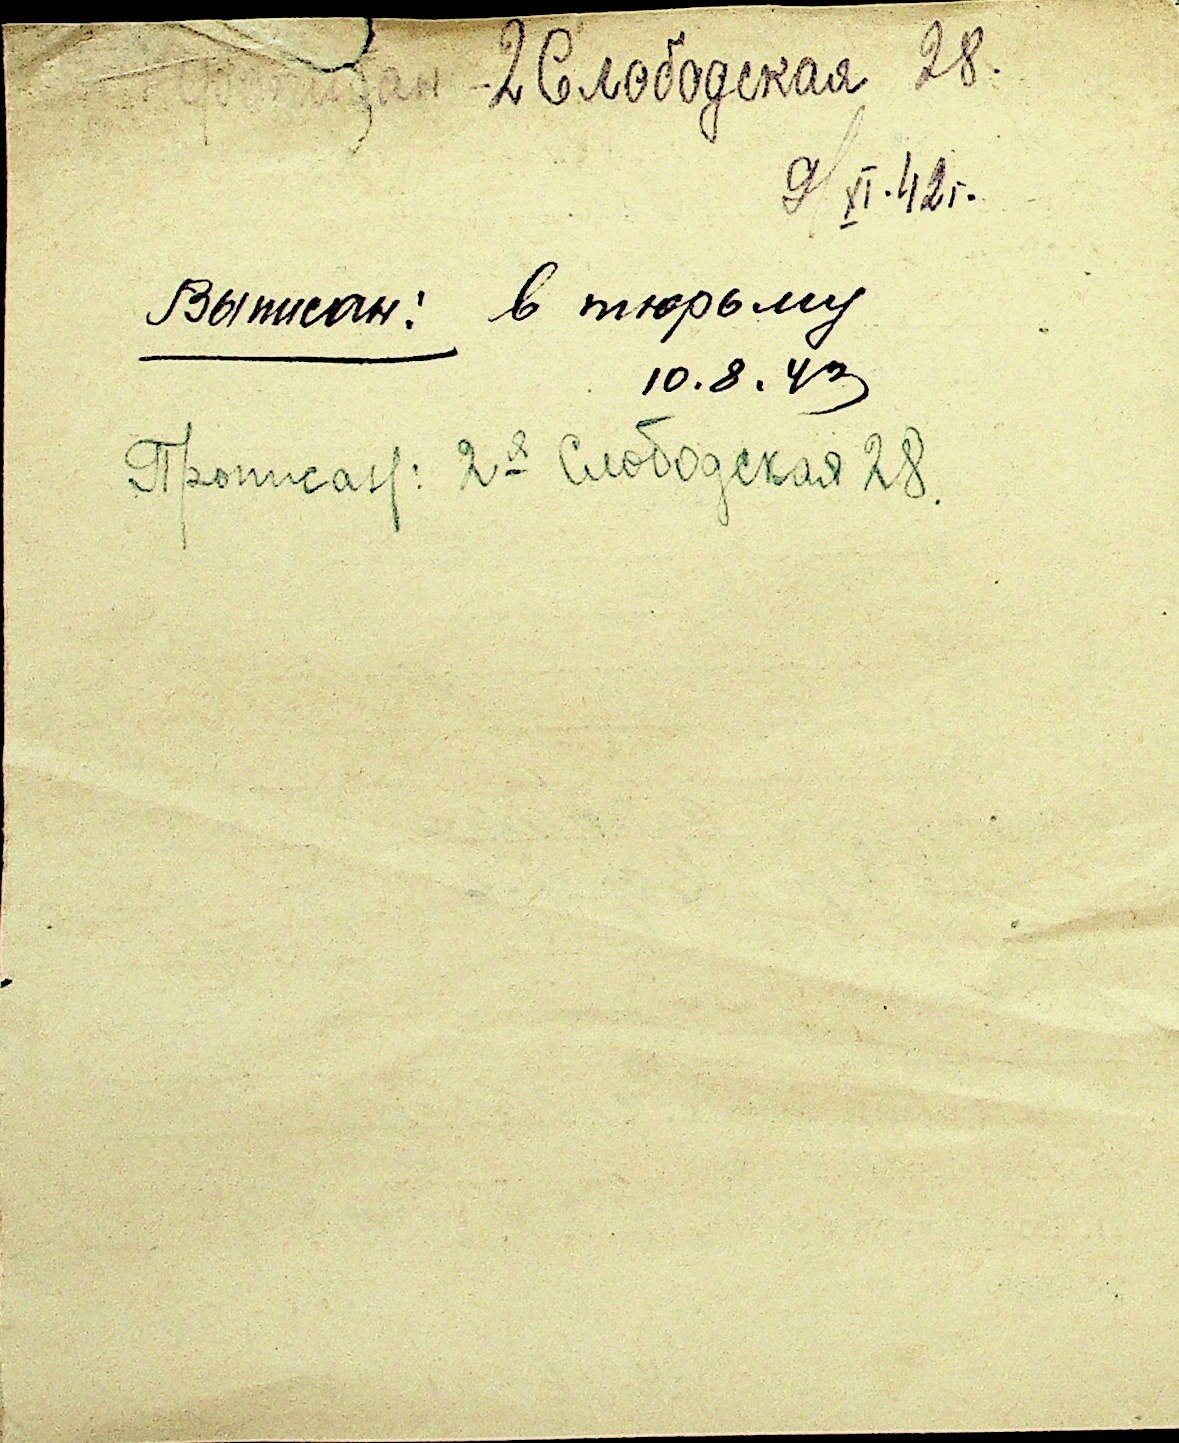 Прописан 2 Слободская 28.
9/XI.42г.
Выписан: в тюрьму
10.8.43
Прописан: 2я Слободская 28.